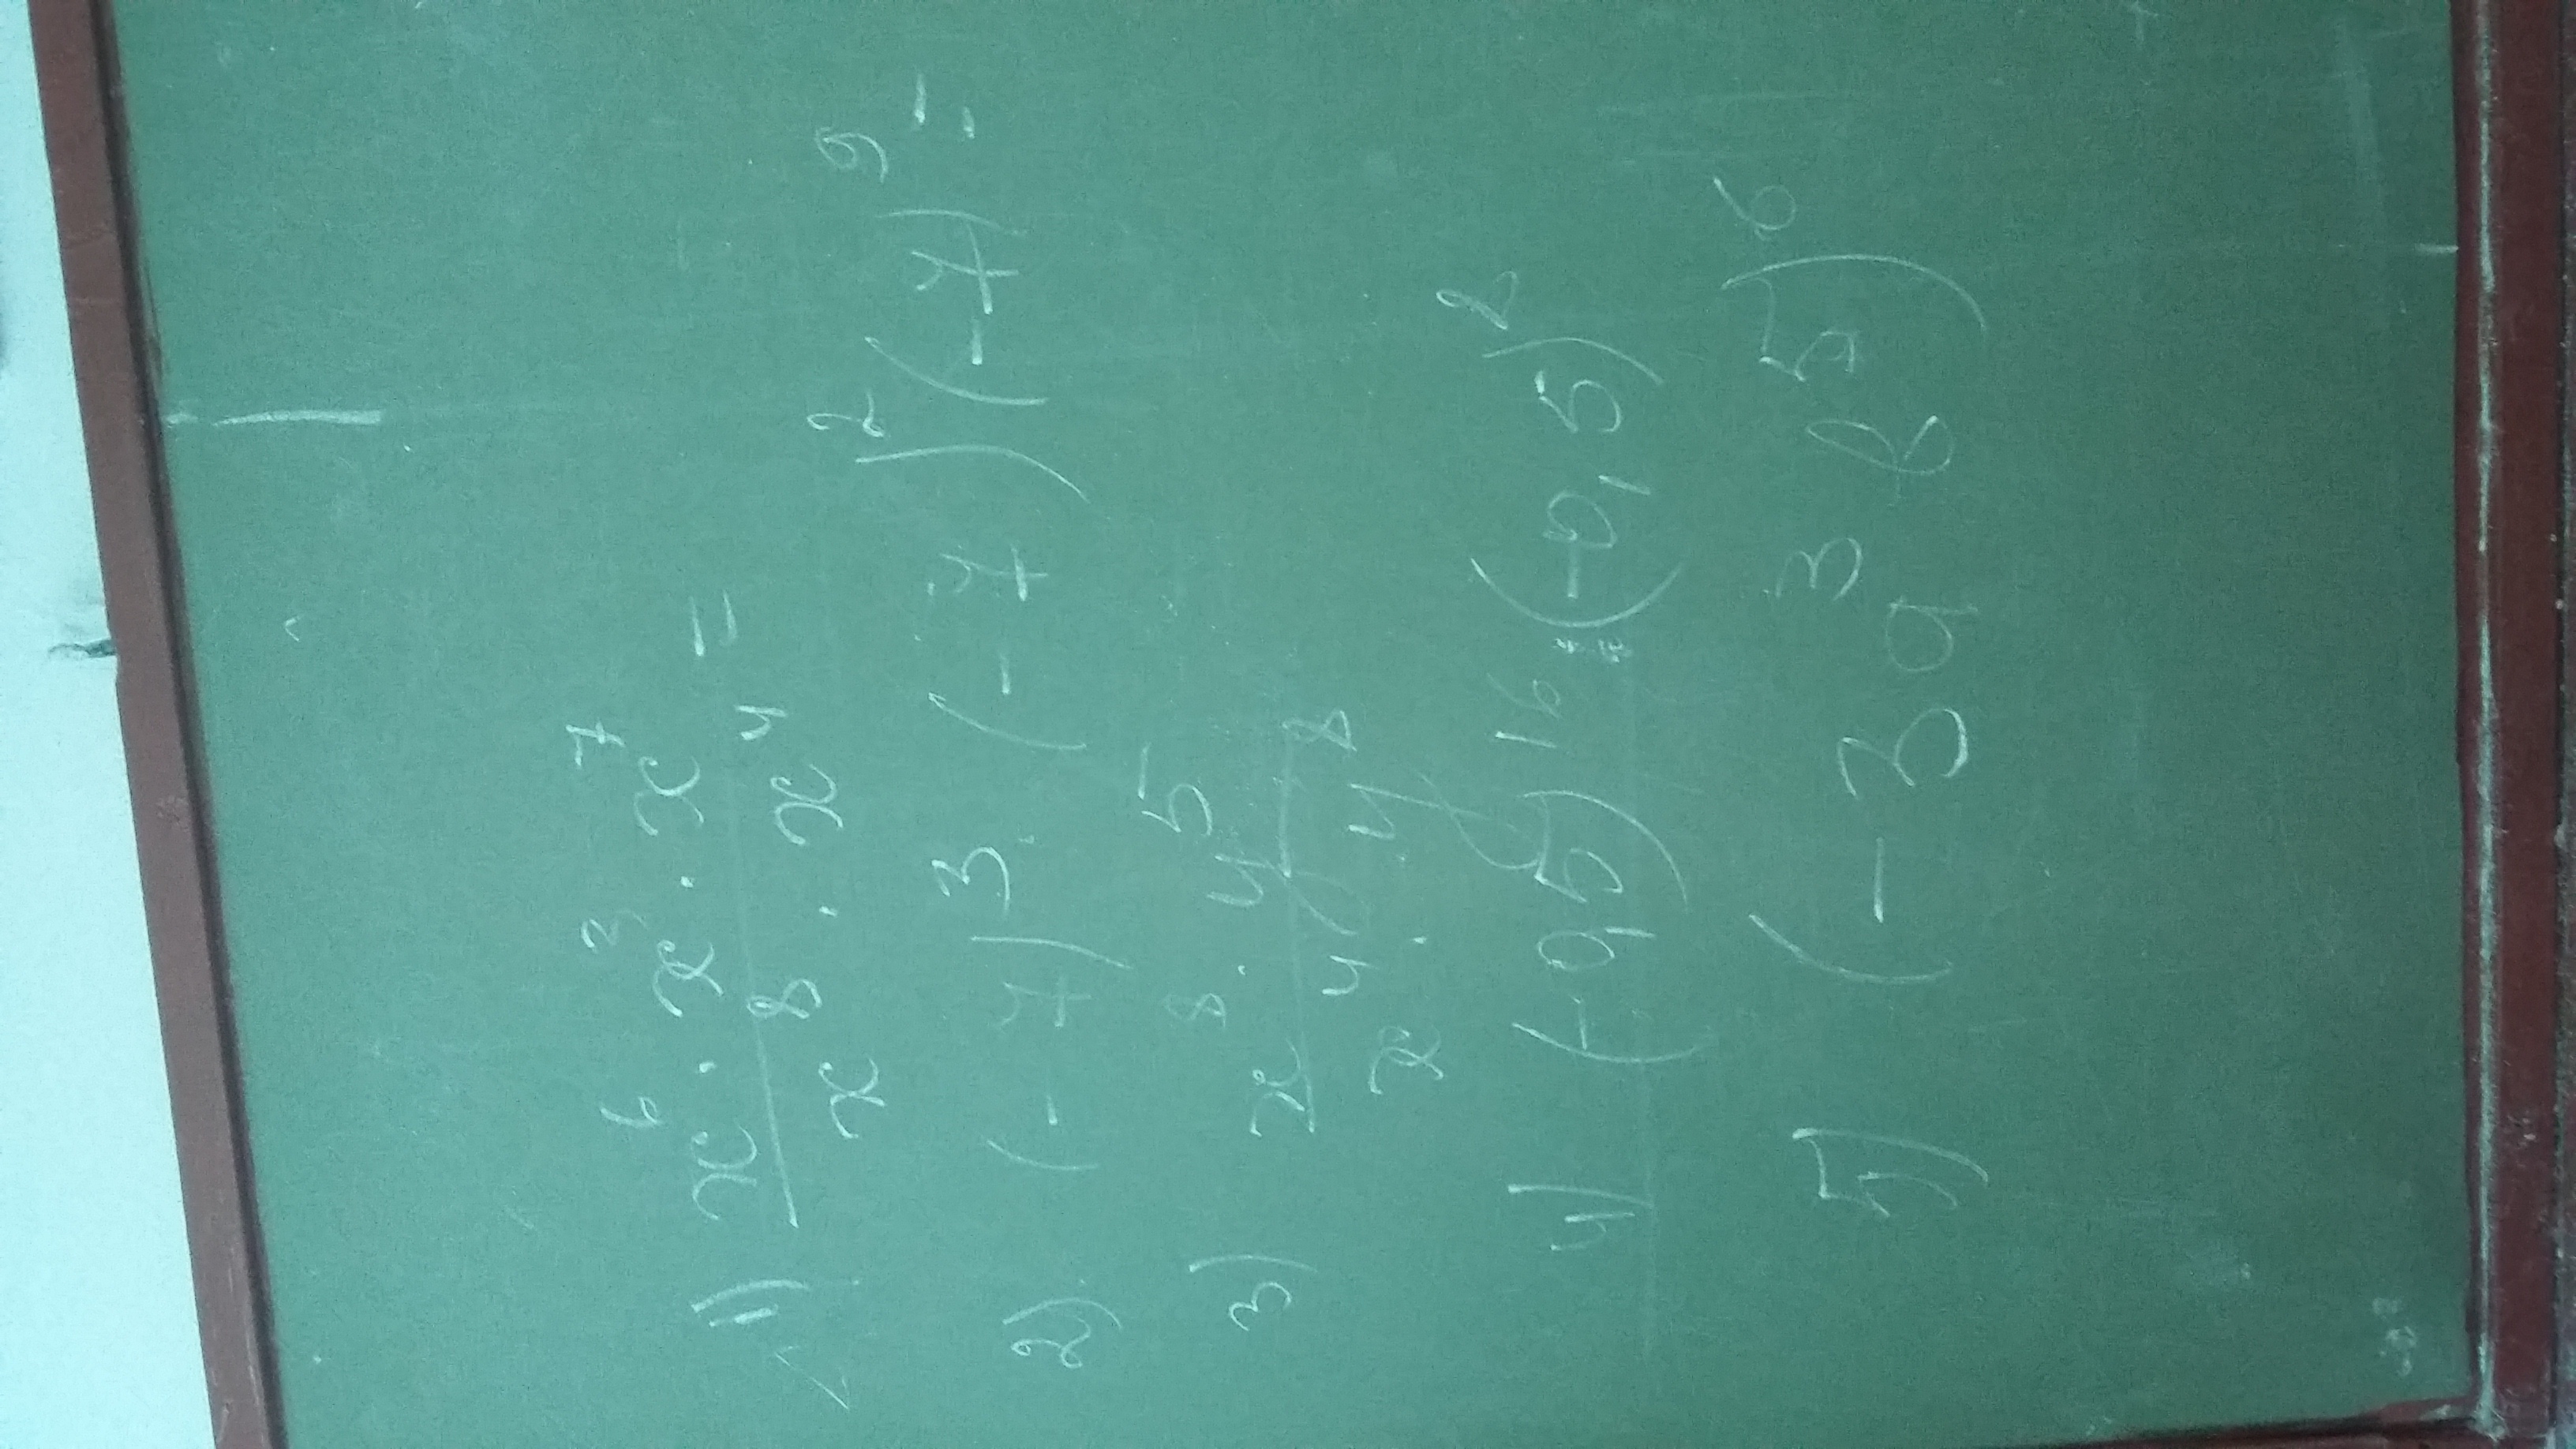 1) x⁶ · x³ · x⁷ =
x⁸ · x⁴
2) (-7)³ (-7)² (-7)⁹ =
3) x⁸ · y⁵
x⁴ · y⁸
4) (-0,5)¹⁶ : (-0,5)⁸
5) (-3a³b⁵)⁶